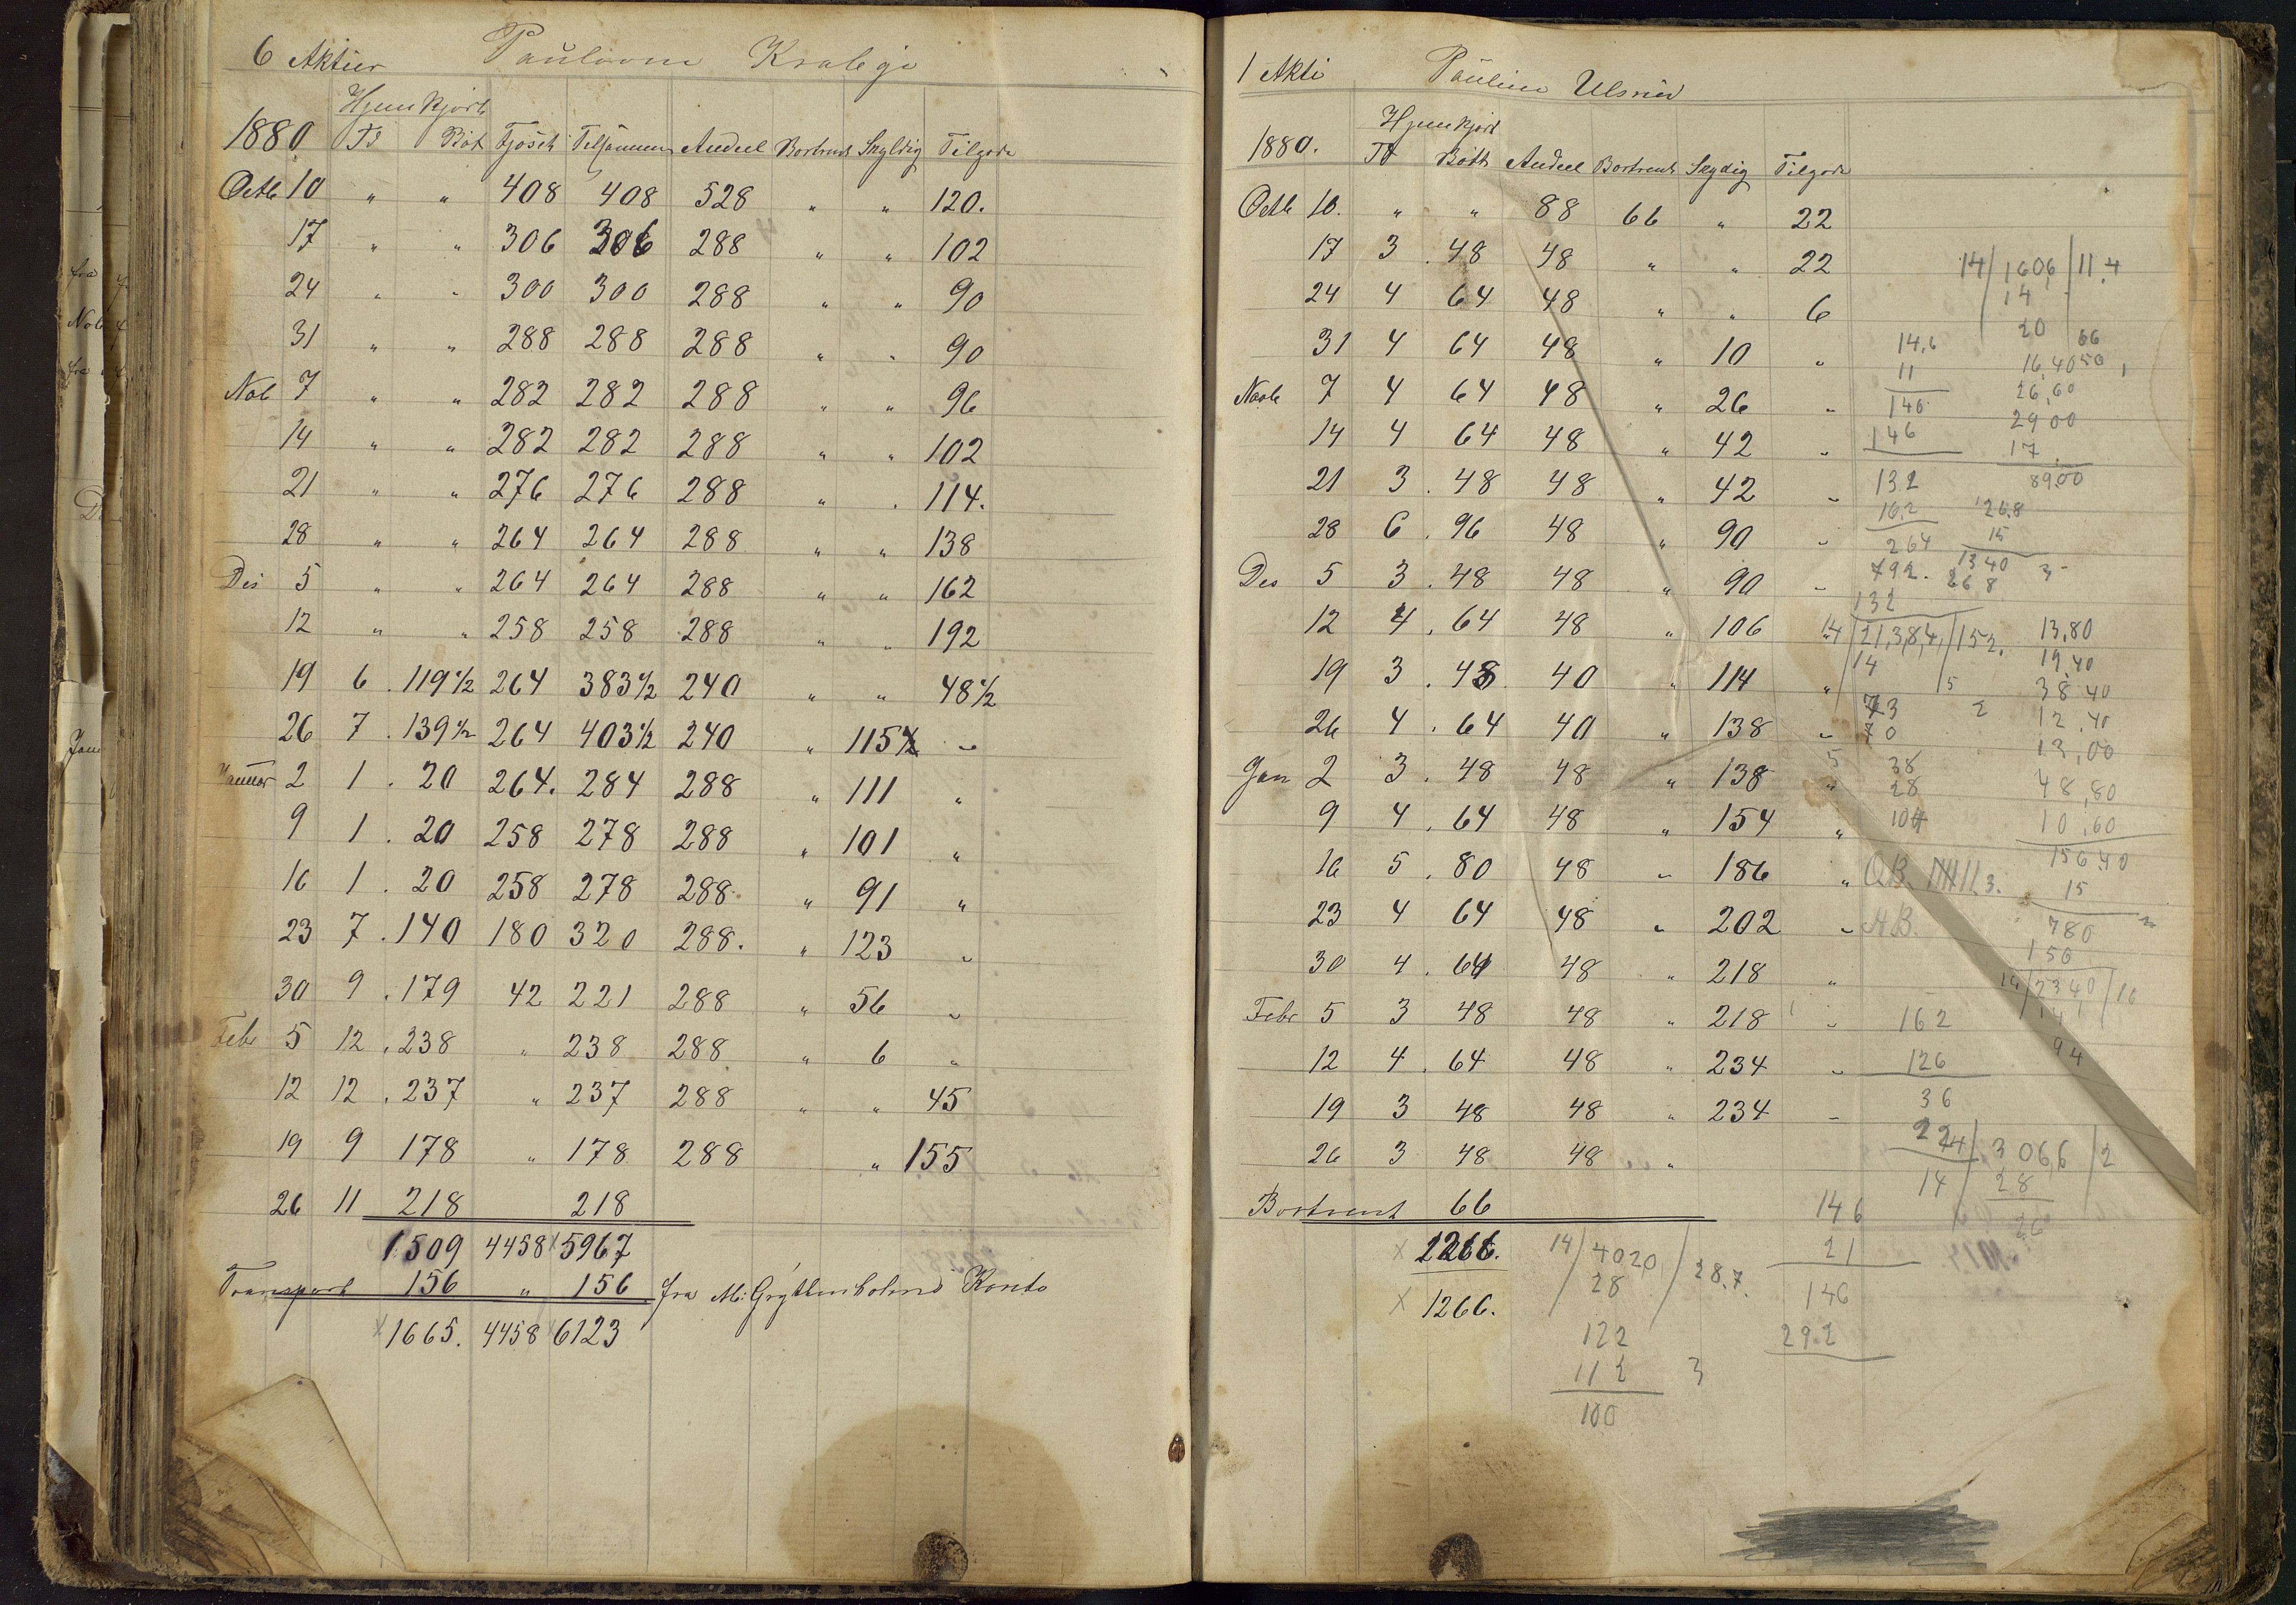 6 Aktier
Hjemkjørt
1880 Td Bøt Fjøset Tilsammen Andeel Bortrent Skyldig Tilgode
Octb 10 " " 408 408 528 " " 120.
17 " " 306 306 288 " " 102
24 " " 300 300 288 " " 90
31 " " 288 288 288 " " 90
Nob 7 " " 282 282 288 " " 96
14 " " 282 282 288 " " 102
21 " " 276 276 288 " " 114.
28 " " 264 264 288 " " 138
Des 5 " " 264 264 288 " " 162
12 " " 258 258 288 " " 192
19 6 . 119 1/2 264 383 1/2 240 " " 48 1/2
26 7 . 139 1/2 264 403 1/2 240 " 115 "
Januar 2 1 . 20 264. 284 288 " 111 "
9 1 . 20 258 278 288 " 101 "
16 1 . 20 258 278 288 " 91 "
23 7 . 140 180 320 288. " 123 "
30 9 . 179 42 221 288 " 56 "
Febr 5 12 . 238 " 238 288 " 6 "
12 12 . 237 " 237 288 " " 45
19 9 178 " 178 288 " 155
26 11 218 218
1509 4458 x 5967
Transport 156 " 156 fra M: Grythenholms Konto
x 1665. 4458 x 6123
1 Akti Pauline Ulsned
Hjemkjørt
1880. Td Bøtt Andeel Bortrent Skydig Tilgode
Octb 10. " " 88 66 " 22
17 3 . 48 48 " " 22
24 4 64 48 " " 6
31 4 64 48 " 10 "
Novb 7 4 64 48 " 26 "
14 4 64 48 " 42 "
21 3 . 48 48 " 42 "
28 6 . 96 48 " 90 "
Des 5 3 . 48 48 " 90 "
12 4 . 64 48 " 106 "
19 3 . 48 40 " 114 "
26 4 . 64 40 " 138 "
Jan 2 3 . 48 48 " 138 "
9 4 . 64 48 " 154 "
16 5 . 80 48 " 186 "
23 4 64 48 " 202 "
30 4 . 64 48 " 218 "
Febr 5 3 48 48 " 218 "
12 4 . 64 48 " 234 "
19 3 48 48 " 234 "
26 3 48 48 "
Bortrent 66
x 1266.
x 1266.
14/1606/11.4
14
20
14,6
11
146
146
66
16,40 50
26,60
29 00
17
89,00
132
16,2
264
792.
132
126,8
15
1340
268
14/21,3,8,4,/152.
14
73
70
38
28
104
13,80
19,40
38 40
12,40
13,00
48,80
10,60
156,40
15
780
156
14/2340/16
14
94
A.B.
162
126
36
224
14/3066/2
28
26
14
146
21
146
29.2
14/4020/28.7.
28
122
112
100
3